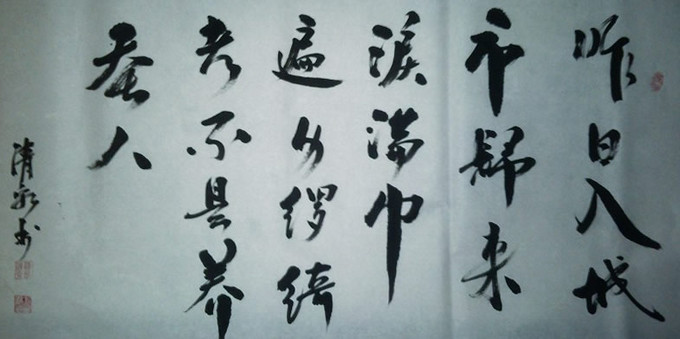 昨日入城
市歸来
淚满巾
遍身羅绮
者不是养
蚕人
清书